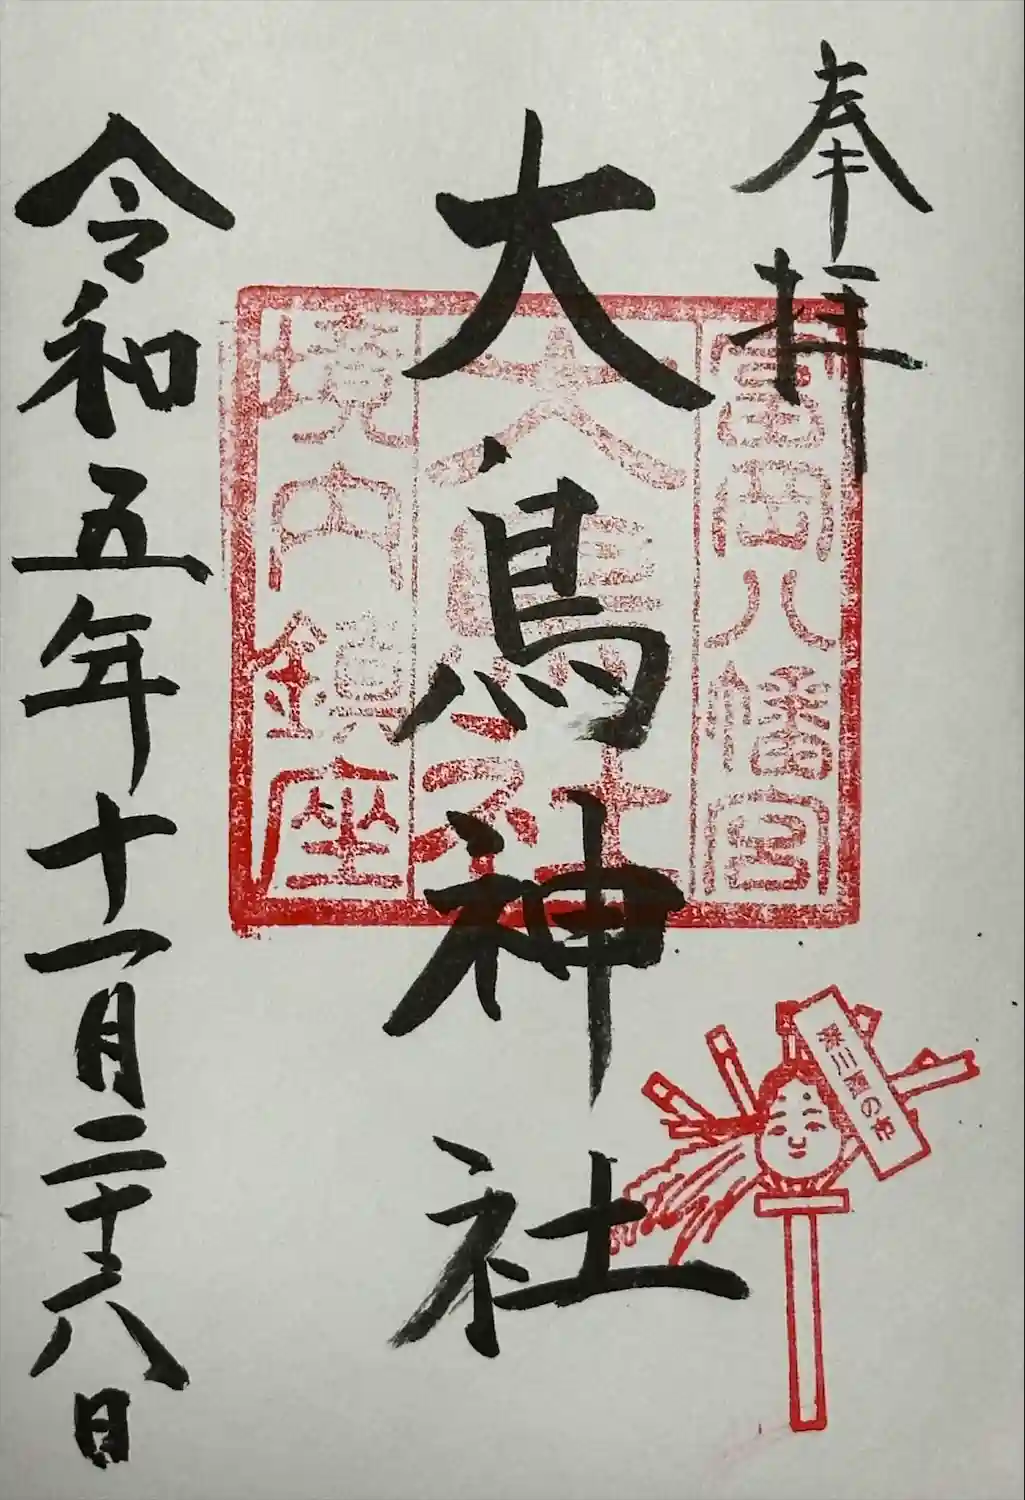 奉拝
富岡八幡宮
大鳥神社
大鳥神社
境内鎮座
令和五年十一月二十六日